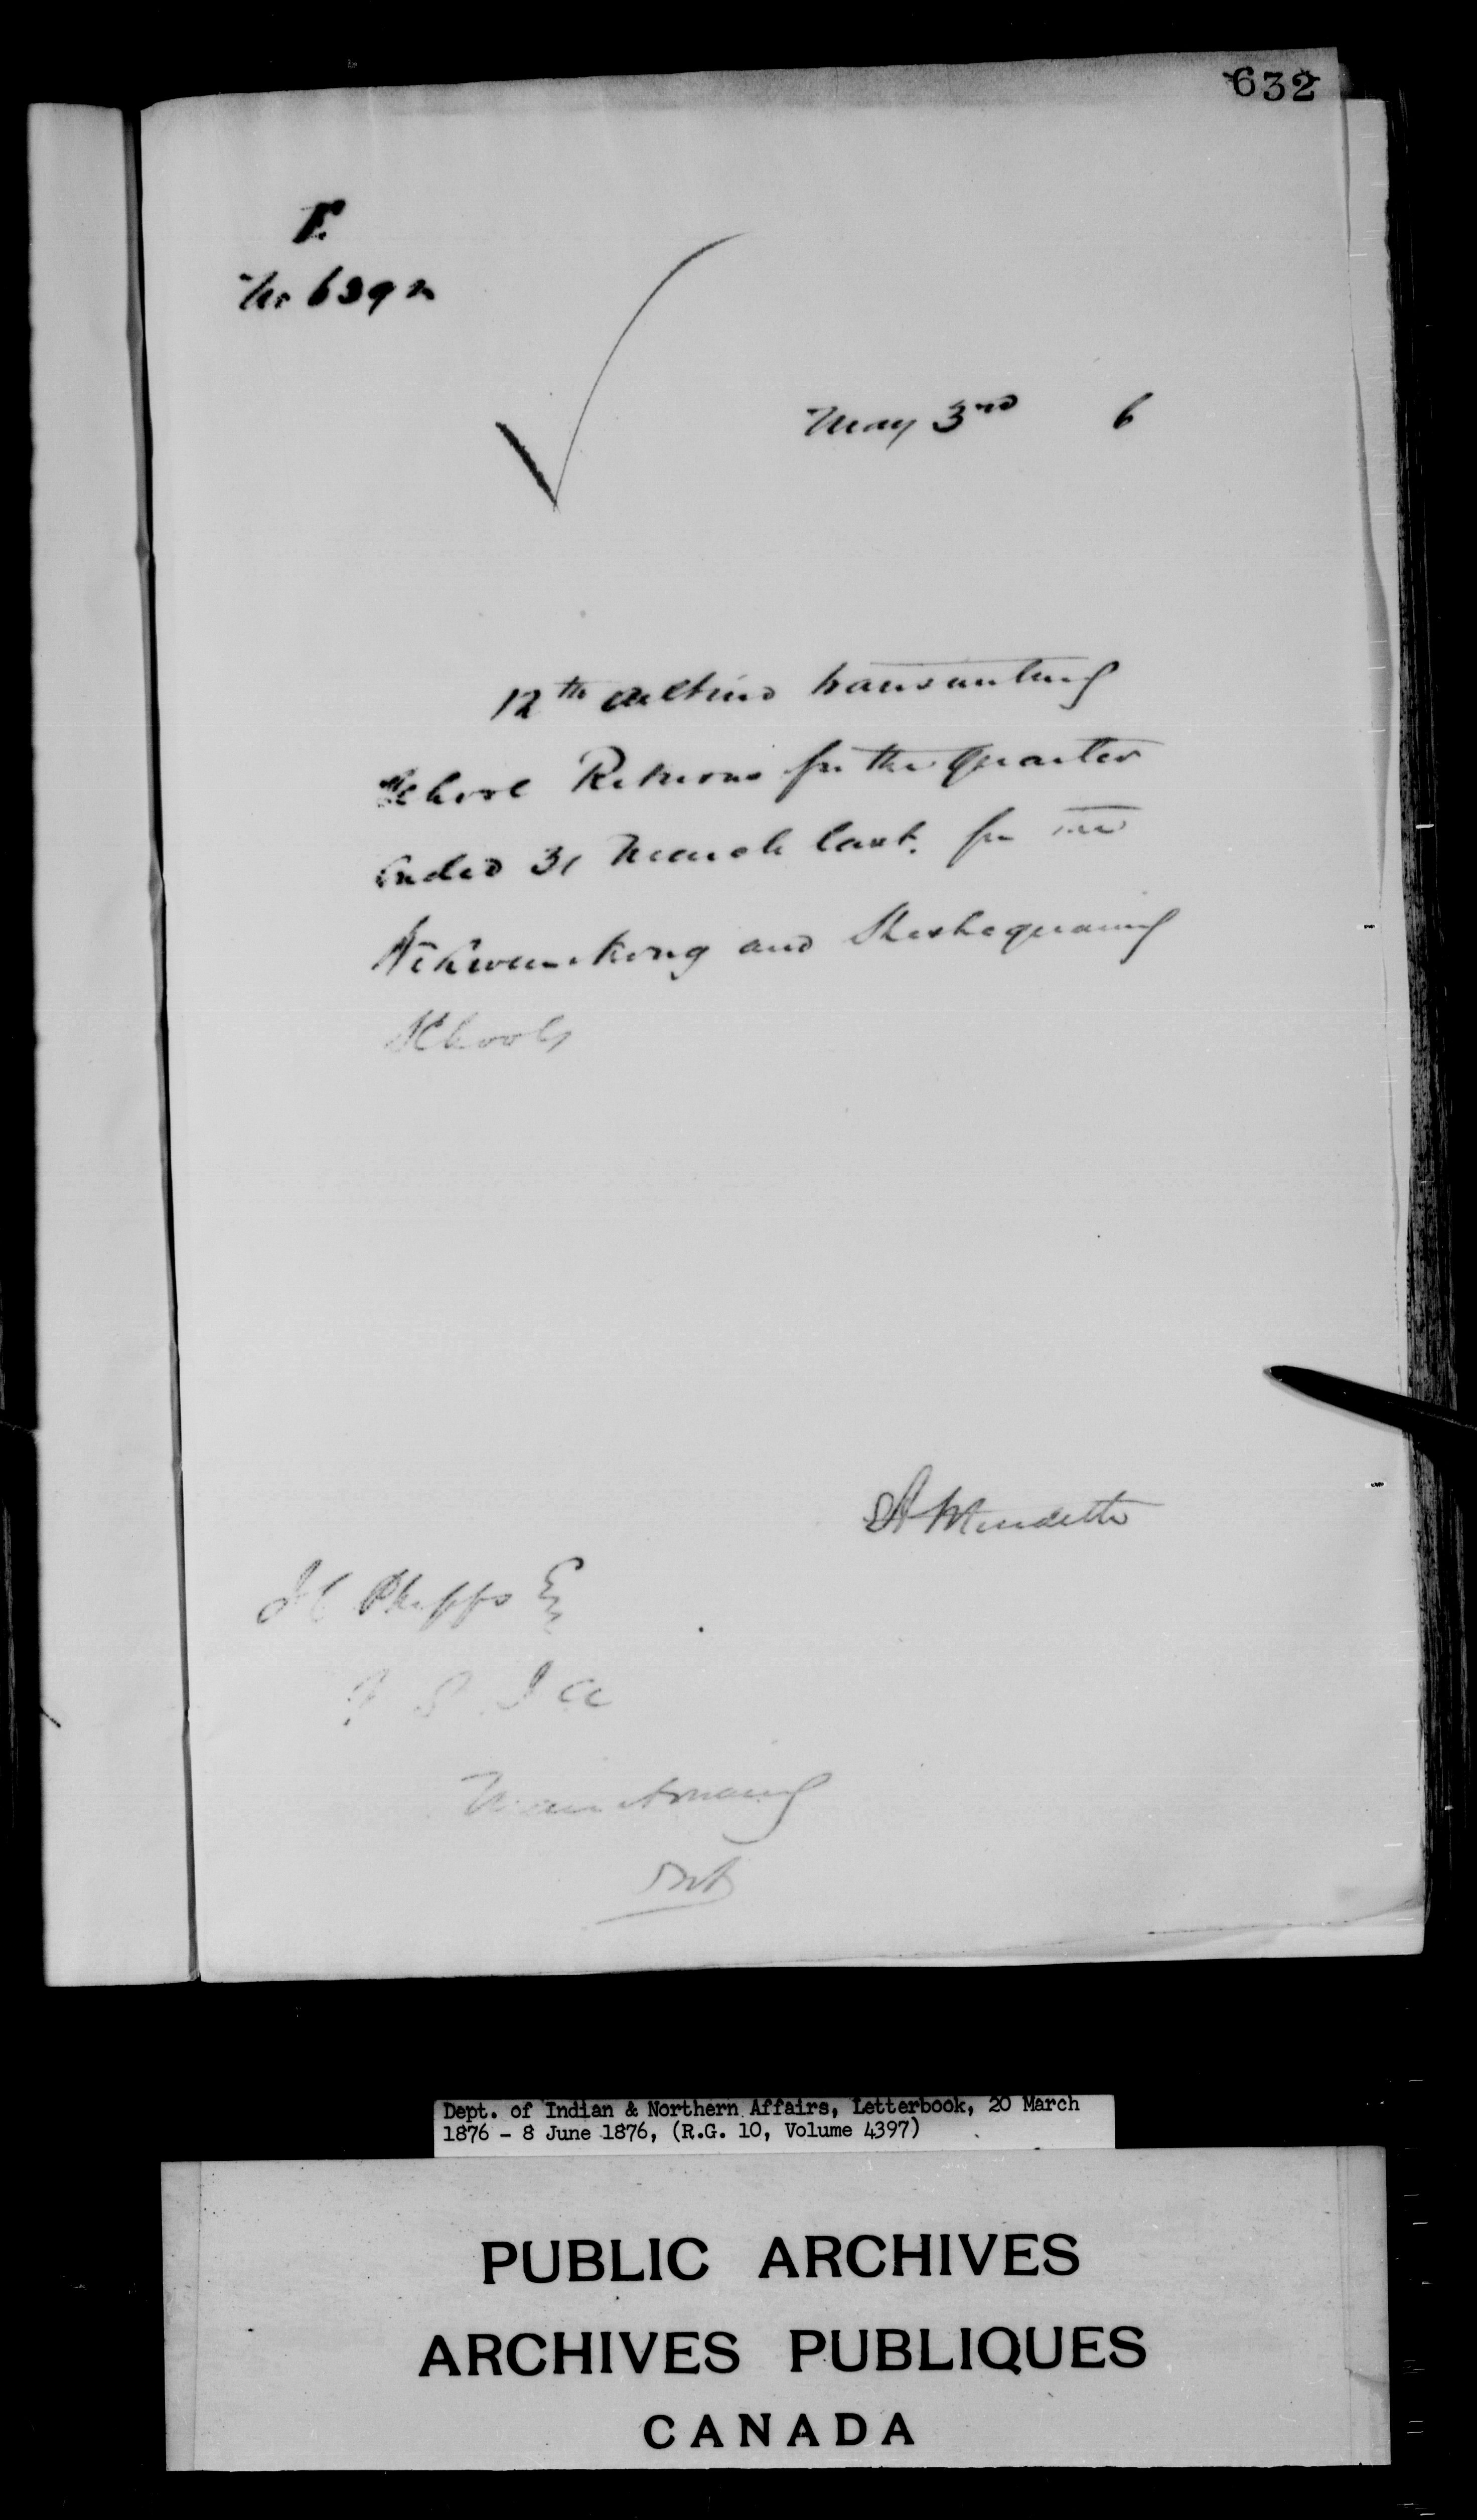 632
F.
No 6392
May 3rd 6
12th Ultimo transmitting
School Returns for the Quarter
ended 31 March last. for the
and Sheshegwaning
Schools
J C Phipps Esq
V S I A
Manitowaning
Ont
Dept. of Indian & Northern Affairs, Letterbook, 20 March
1876 - 8 June 1876, (R.G. 10, Volume 4397)
PUBLIC ARCHIVES
ARCHIVES PUBLIQUES
CANADA